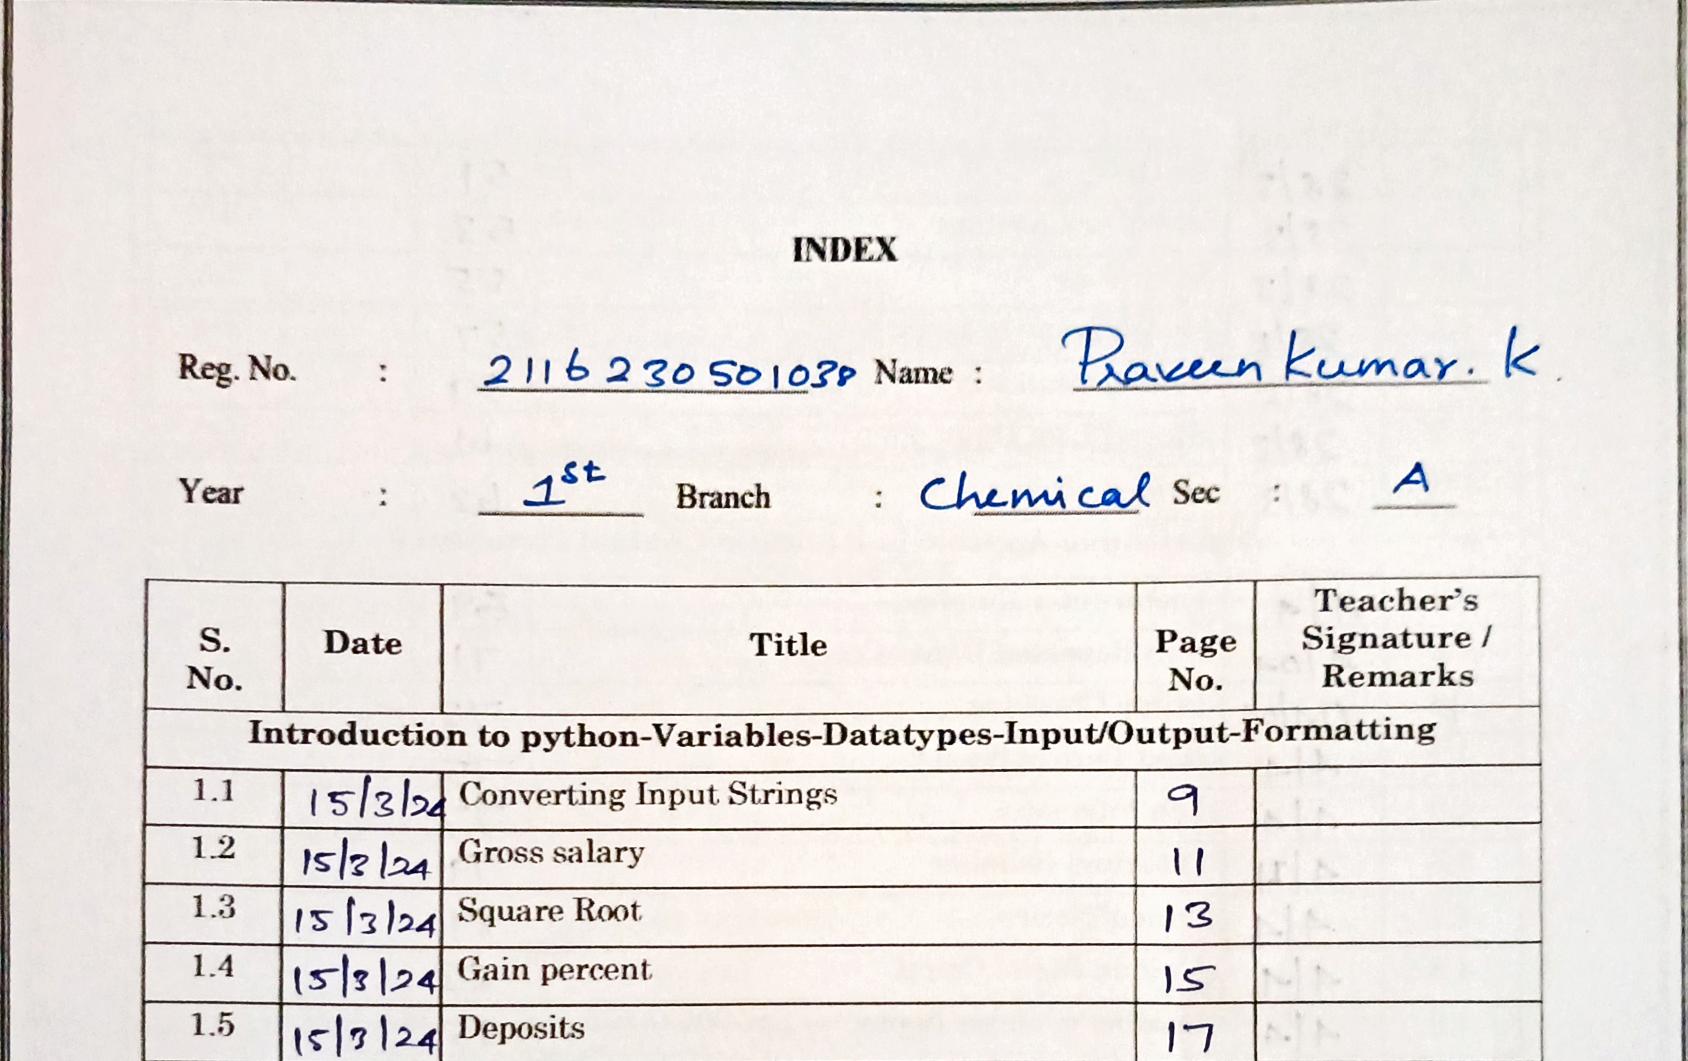 INDEX
Reg. No. : 2116230501038 Name : Praveen Kumar. K.
Year : 1st Branch : Chemical Sec : A
S. No. Date Title Page No. Teacher's Signature / Remarks
Introduction to python-Variables-Datatypes-Input/Output-Formatting
1.1 15/3/24 Converting Input Strings 9
1.2 15/3/24 Gross salary 11
1.3 15/3/24 Square Root 13
1.4 15/3/24 Gain percent 15
1.5 15/3/24 Deposits 17